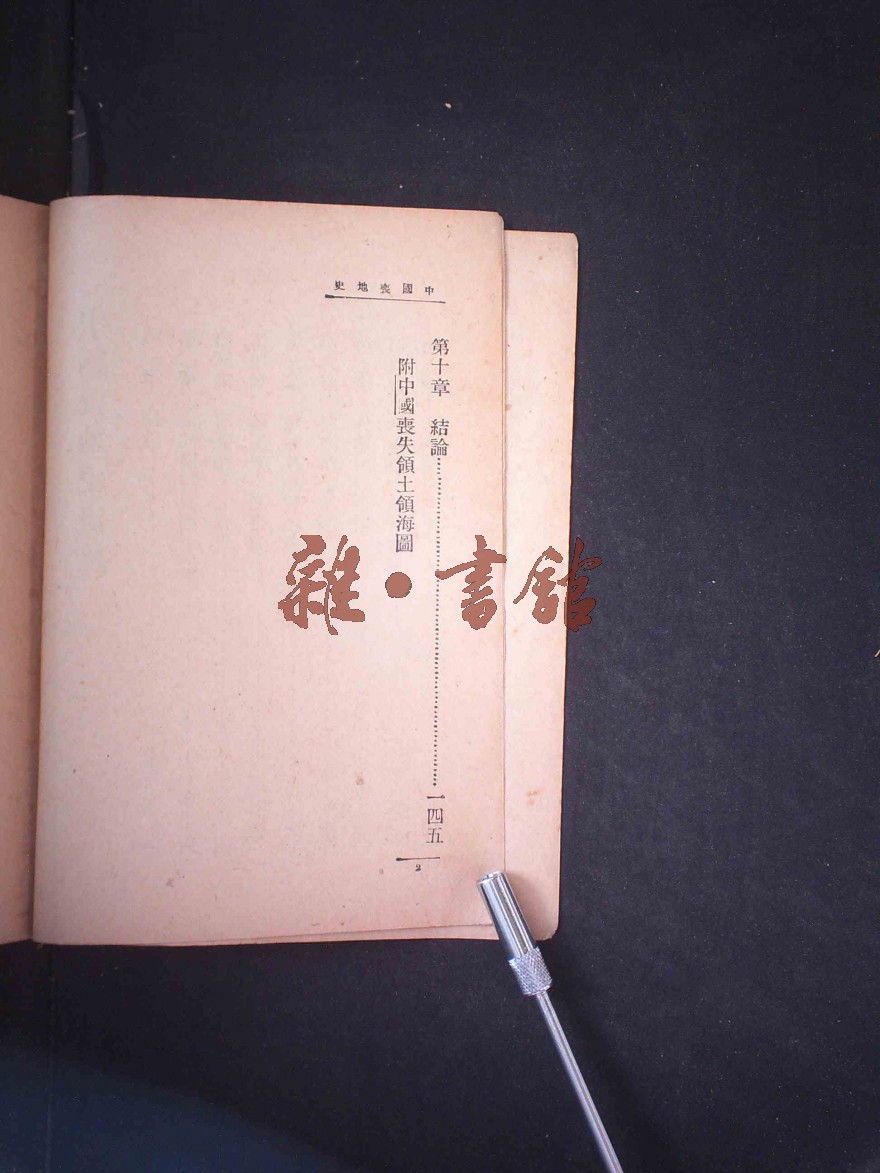 中國喪地史
第十章　結論……一四五
附中國喪失領土領海圖
2
雜·書館